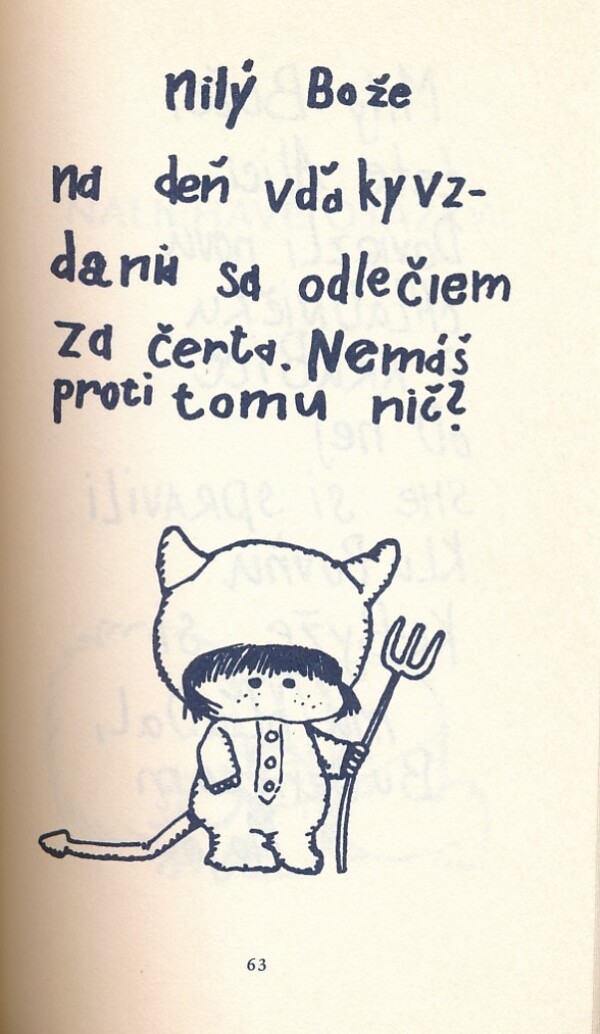 Milý Bože
na deň vďăky vz-
daniu sa odlečiem
za čerta. Nemáš
proti tomu nič?
63